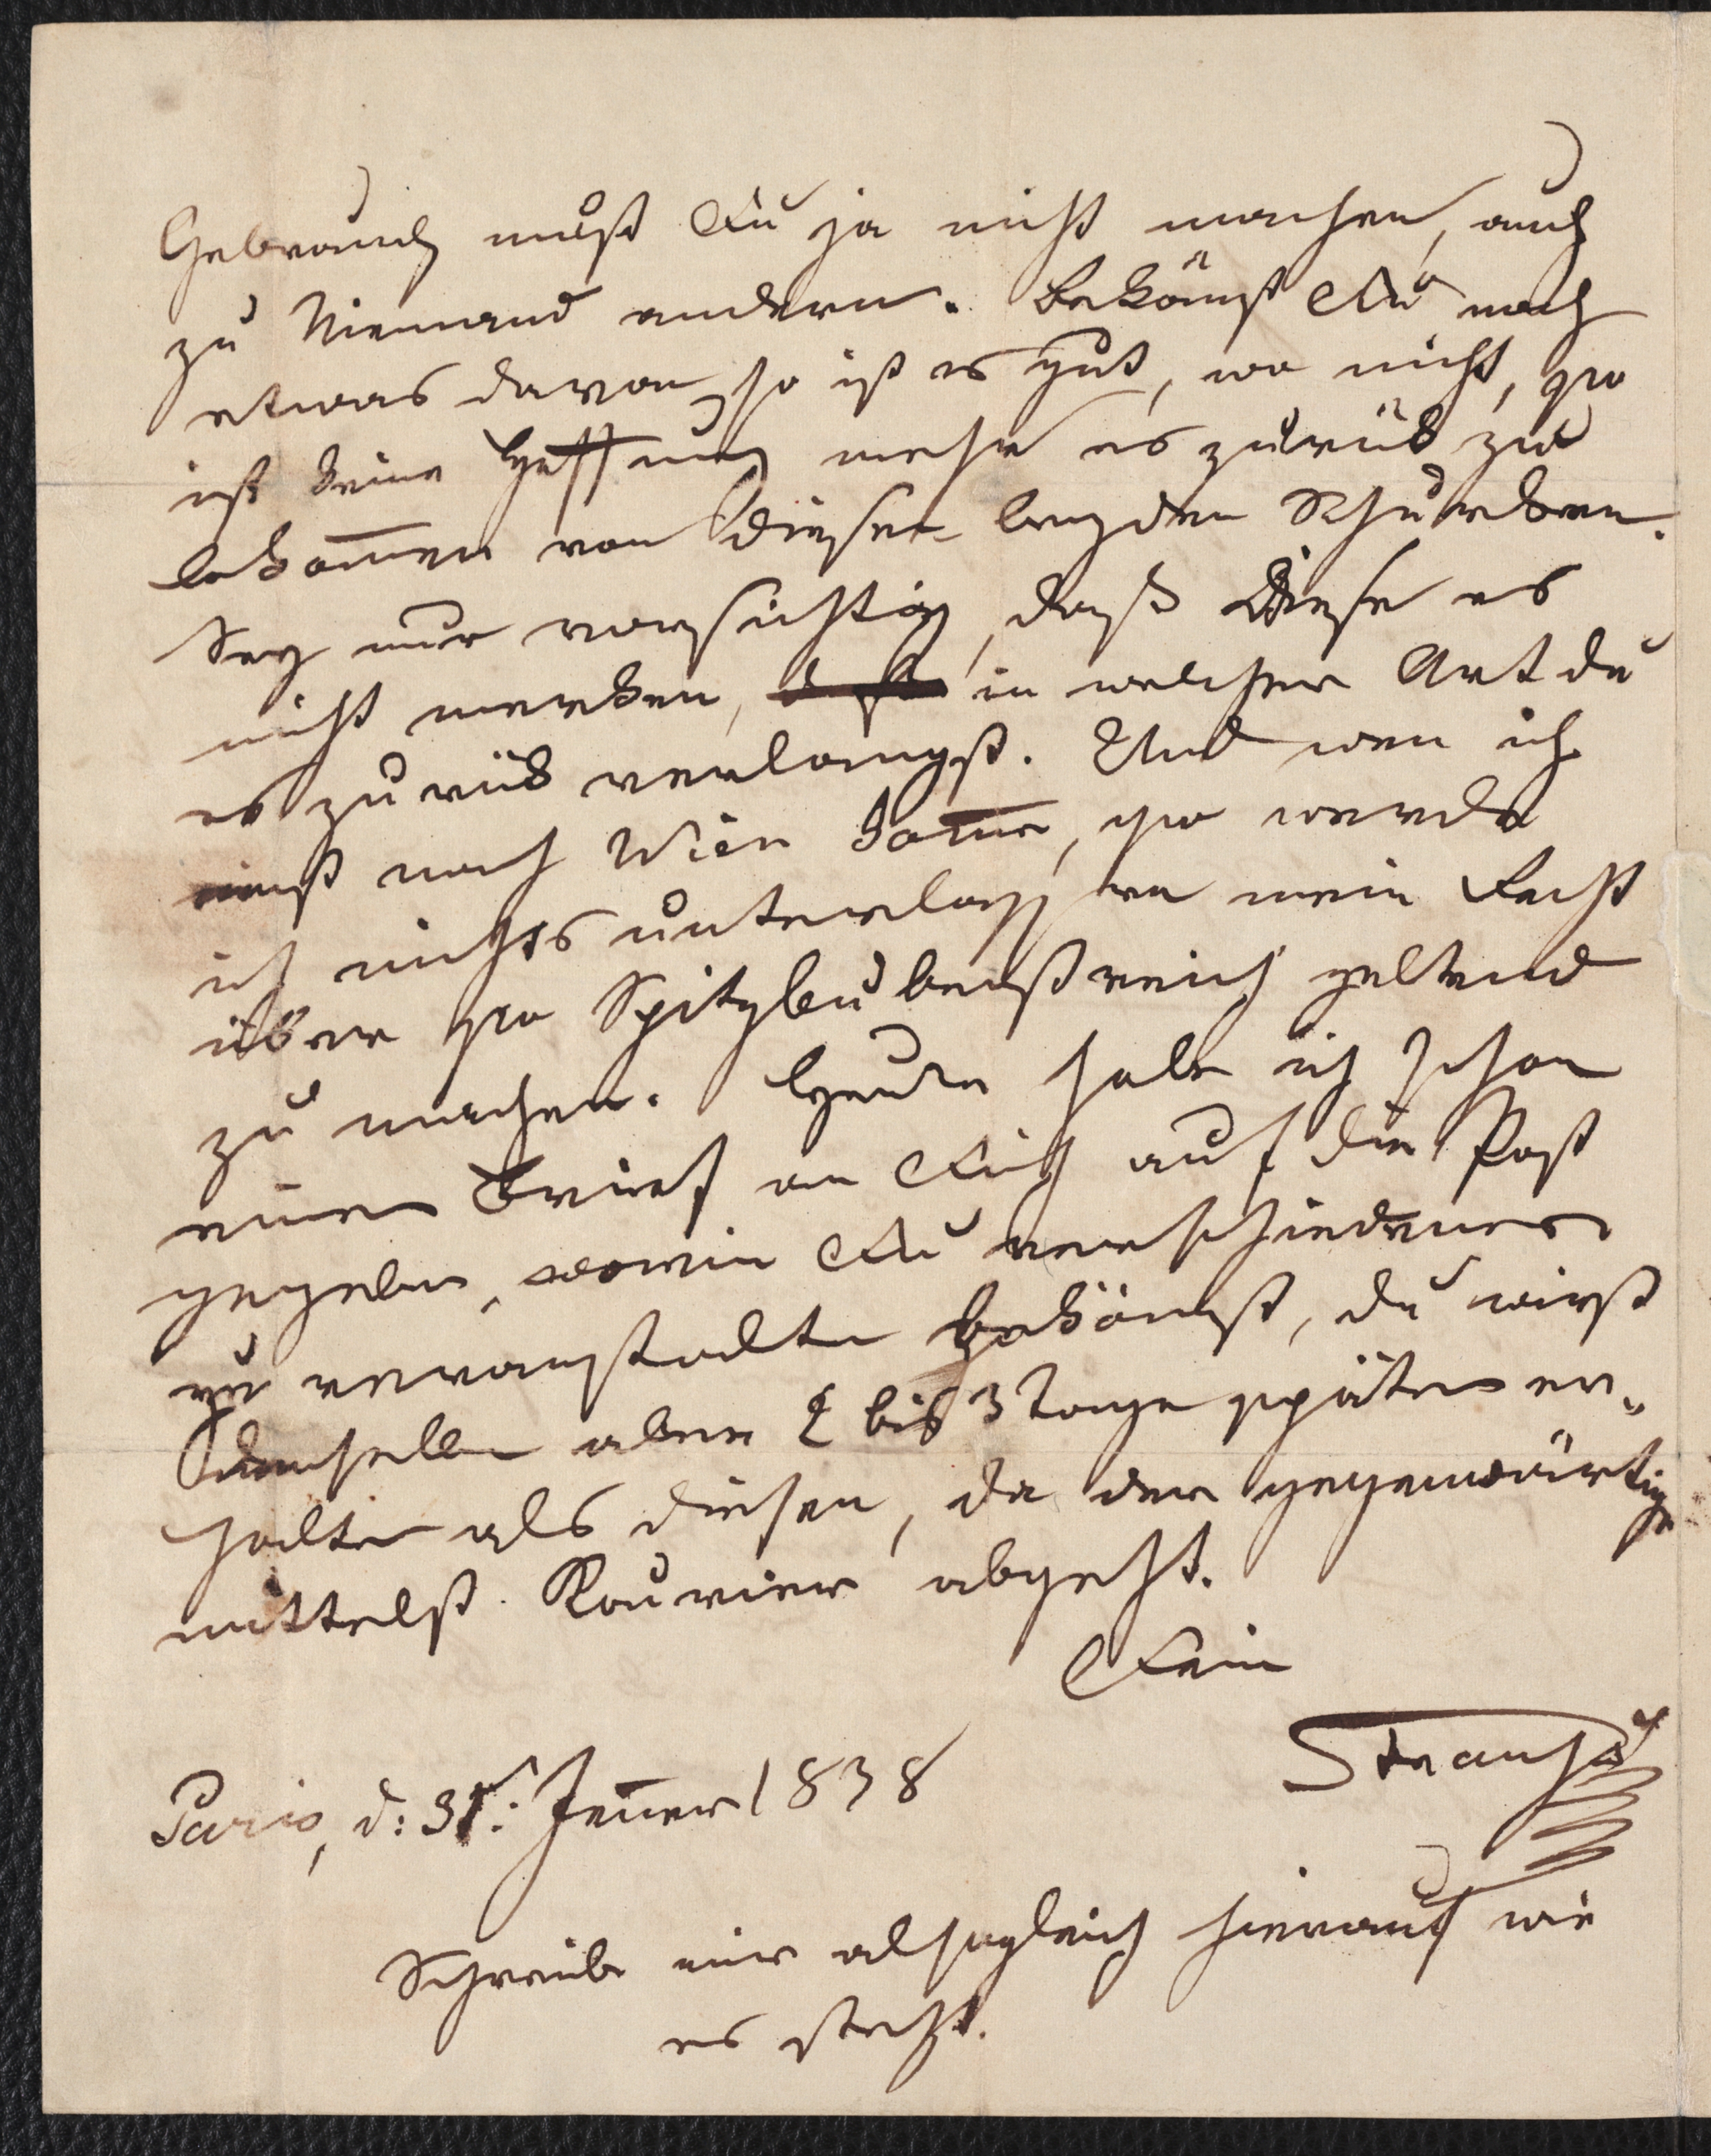 Gebrauch mußt Du ja nicht machen, auch
zu Niemand andern. Bekömst Du noch
etwas davon, so ist es gut, wo nicht, so
ist keine Hoffnung mehr es zurük zu
bekom̅en von diesen beyden Schurken.
Sey nur vorsichtig, daß Diese es
nicht merken, in welcher Art du
es zurük verlangst. Und wen ich
einst nach Wien kom̅e, so werde
ich nichts unterlassen mein Recht
über so Spitzbubenstreich geltend
zu machen. Heute habe ich schon
einen Brief an Dich auf die Post
gegeben, worin Du verschiedenes
zu veranstalten bekömst, du wirst
denselben aber 2 bis 3 Tage später er„
halten als diesen, da der gegenwärtige
mittelst Kourier abgeht.
Dein
Strauß
Paris, d: 31t: Jen̅er 1838
Schreibe mir alsogleich hierauf wie
es steht.